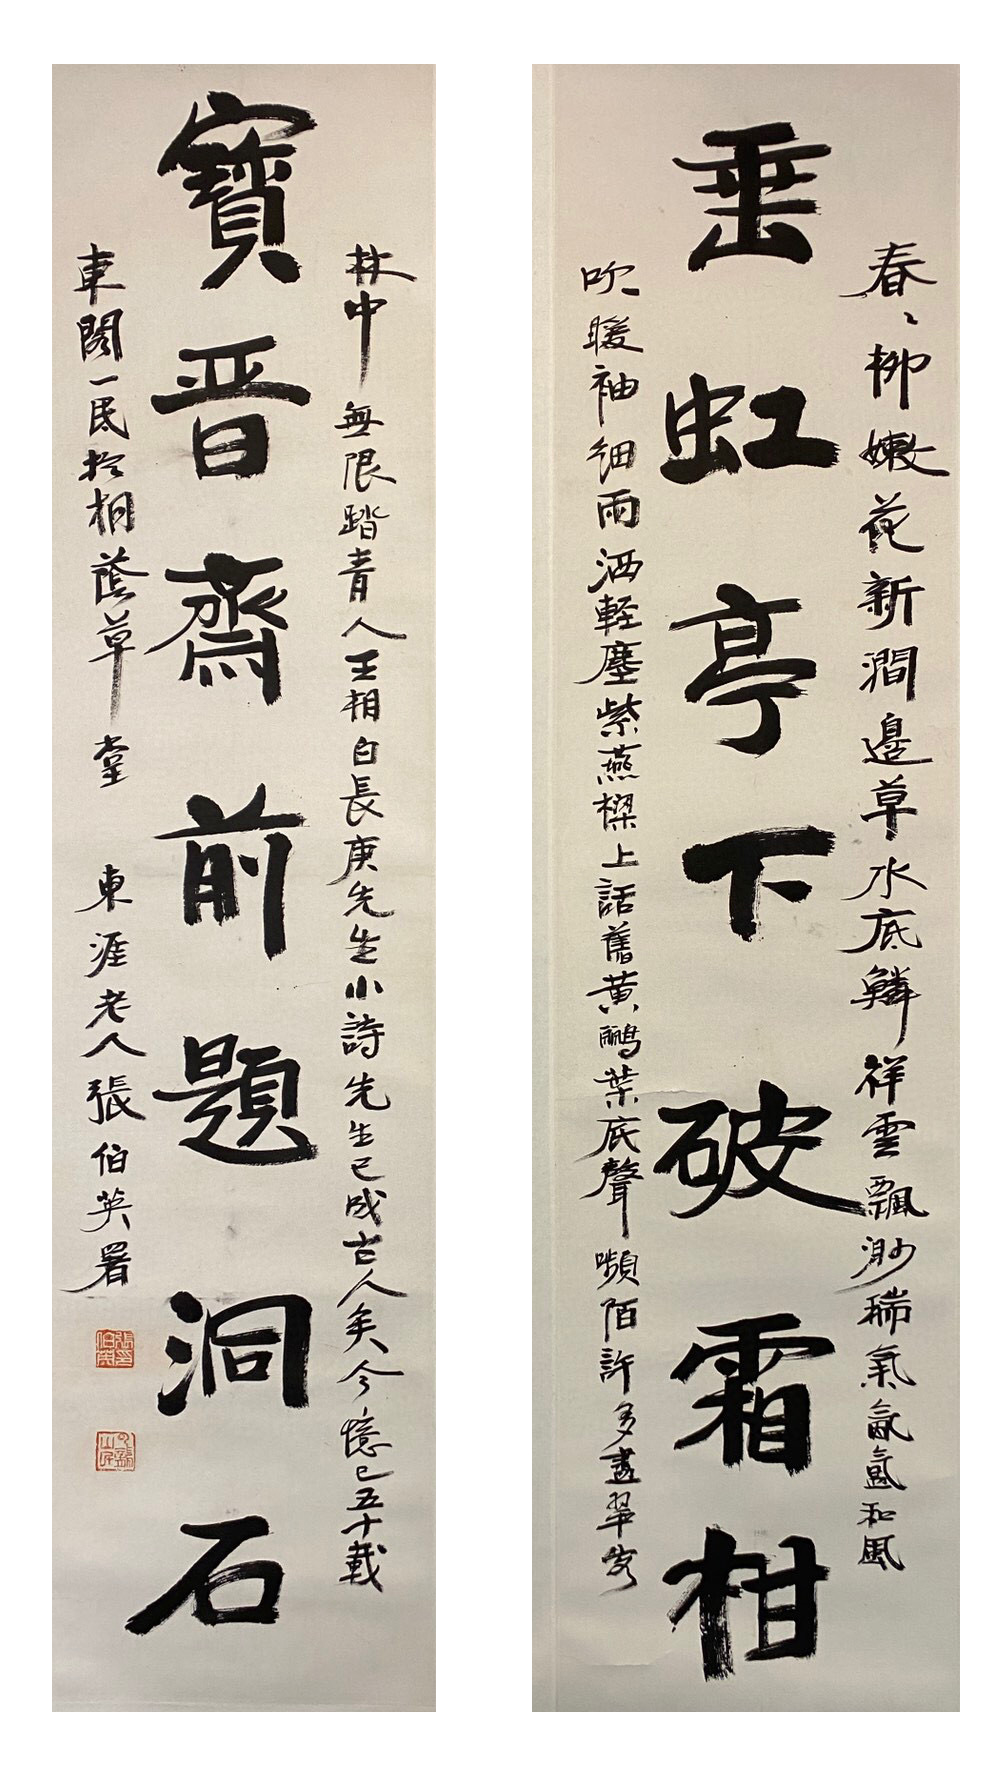 垂虹亭下破霜柑
春、柳嫩花新澗邊草水底鱗祥雲飄渺瑞氣氤氳和風
吹暖袖細雨洒輕塵紫燕樑上話舊黃鸝葉底聲嚬陌許多尋翠客
寶晉齋前題洞石
林中無限踏青人王相白長庚先生小詩先生已成古人矣今憶已五十載
東閣一民於桐蔭草堂 東涯老人張伯英署